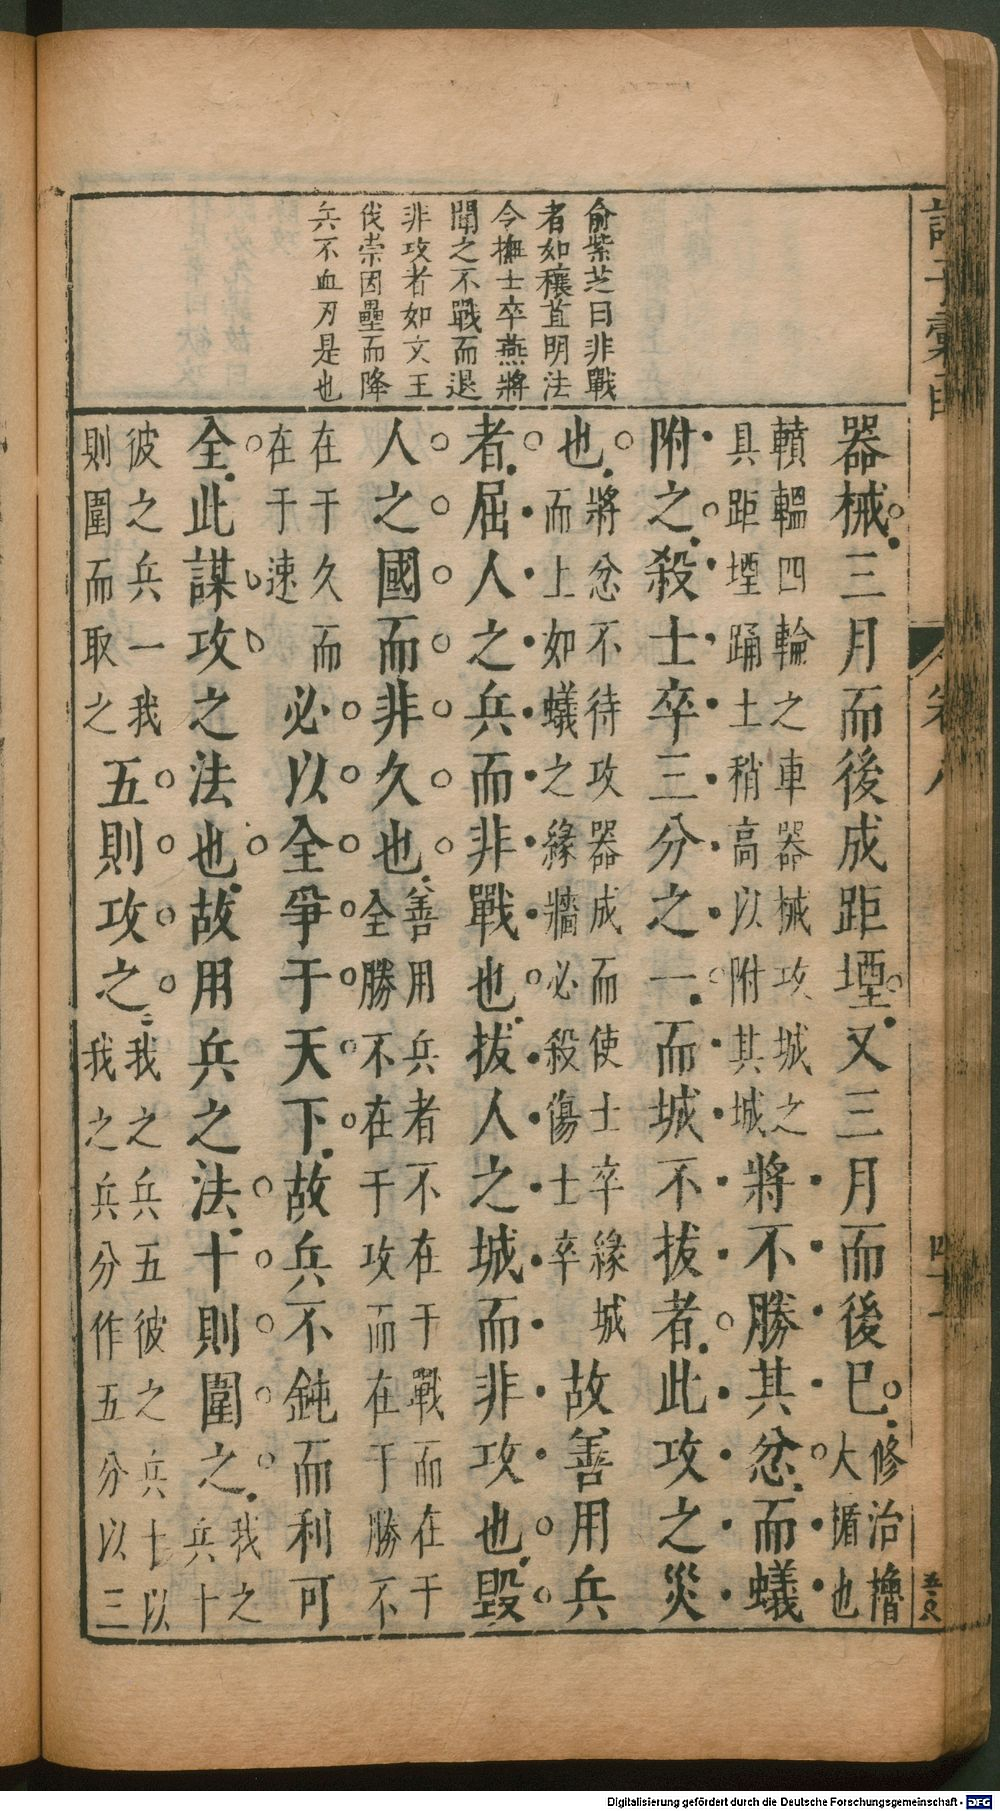 俞紫芝曰非戰
者如穰苴明法
令撫士卒燕將
聞之不戰而退
非攻者如文王
伐崇因壘而降
兵不血刃是也
器械三月而後成距堙又三月而後已修治櫓
大楯也
轒轀四輪之車器械攻城之
具距堙踊土稍高以附其城將不勝其忿而蟻
附之殺士卒三分之一而城不拔者此攻之災
也將忿不待攻器成而使士卒緣城
而上如蟻之緣牆必殺傷士卒故善用兵
者屈人之兵而非戰也拔人之城而非攻也毀
人之國而非久也善用兵者不在于戰而在于
全勝不在于攻而在于勝不
在于久而
在于速必以全爭于天下故兵不鈍而利可
全此謀攻之法也故用兵之法十則圍之我之
兵十
彼之兵一我
則圍而取之五則攻之我之兵五彼之兵士以
我之兵分作五分以三
卷八
四十一
Digitalisierung gefördert durch die Deutsche Forschungsgemeinschaft - DFG